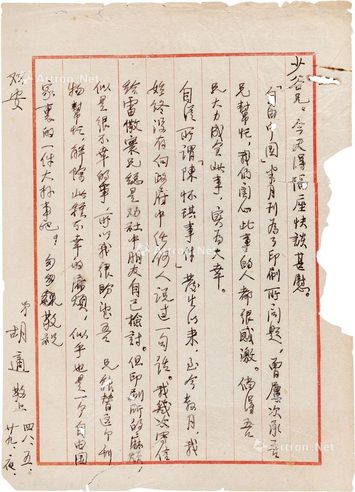 少谷兄：今天得隔座快談，甚慰。
「自由中國」半月刊為了印刷所問題，曾屢次承吾
兄幫忙，我們關心此事的人都很感激。倘得吾
兄大力成全此事，實為大幸。
自從所謂「陳懷琪事件」發生以來，至今數月，我
始終沒有向政府中任何人說過一句話。我幾次寫信
給雷儆寰兄總是勸社中朋友自己檢討。但印刷所的麻煩，
似是很不幸的事，所以我很盼望吾 兄能替這个刊
物幫忙解除此種不幸的麻煩，似乎也是一个自由國
家裏的一件大事吧。匆匆敬祝
安
弟 胡適敬上 四八、五、廿九夜
Artron.Net